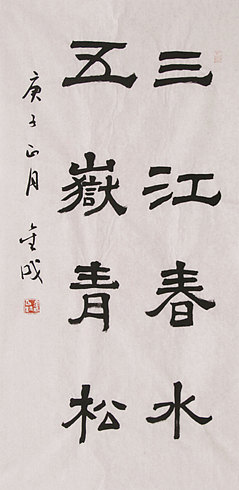 三江春水
五嶽青松
庚子正月
金成